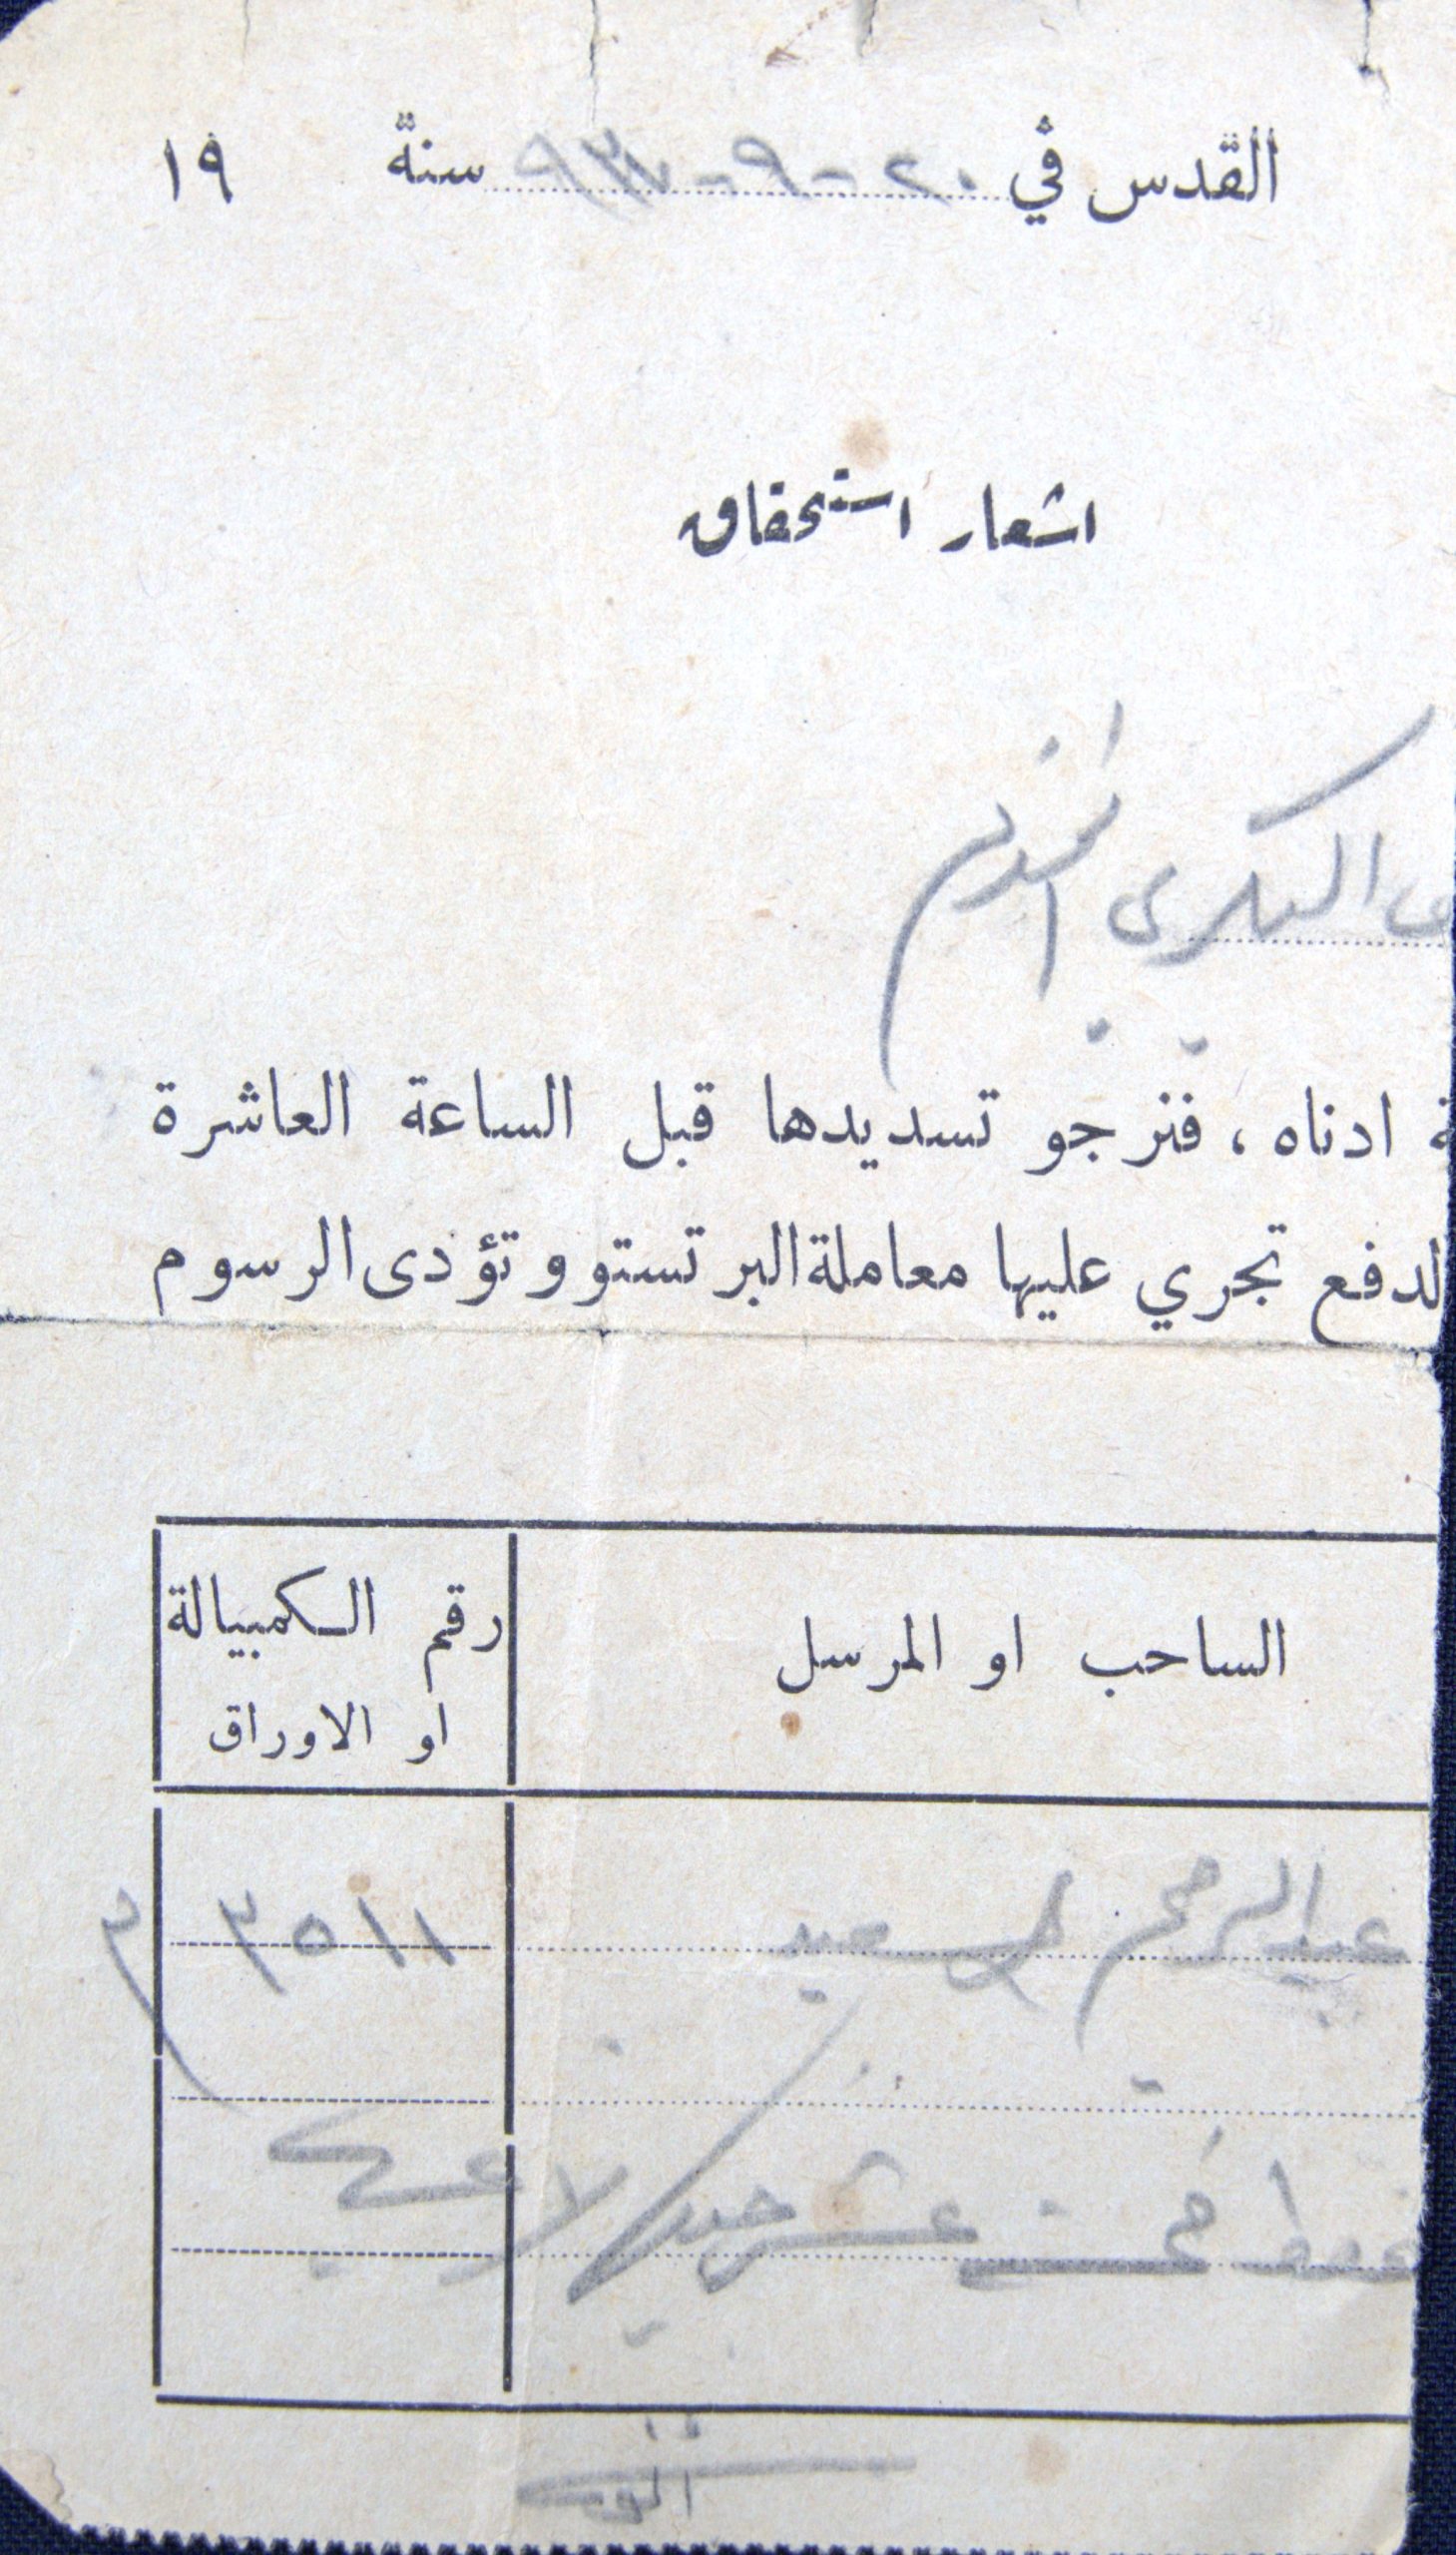 القدس في ٢٠-٩-٩٣٧ سنة ١٩
اشعار استحقاق
البكري المحترم
ادناه ، فنرجو تسديدها قبل الساعة العاشرة
لدفع تجري عليها معاملة البرتستو وتؤدى الرسوم
الساحب او المرسل
رقم الكمبيالة
او الاوراق
عبد الرحيم السعيد ٣٥١١
فقط خمسة عشر جنيه لا غير